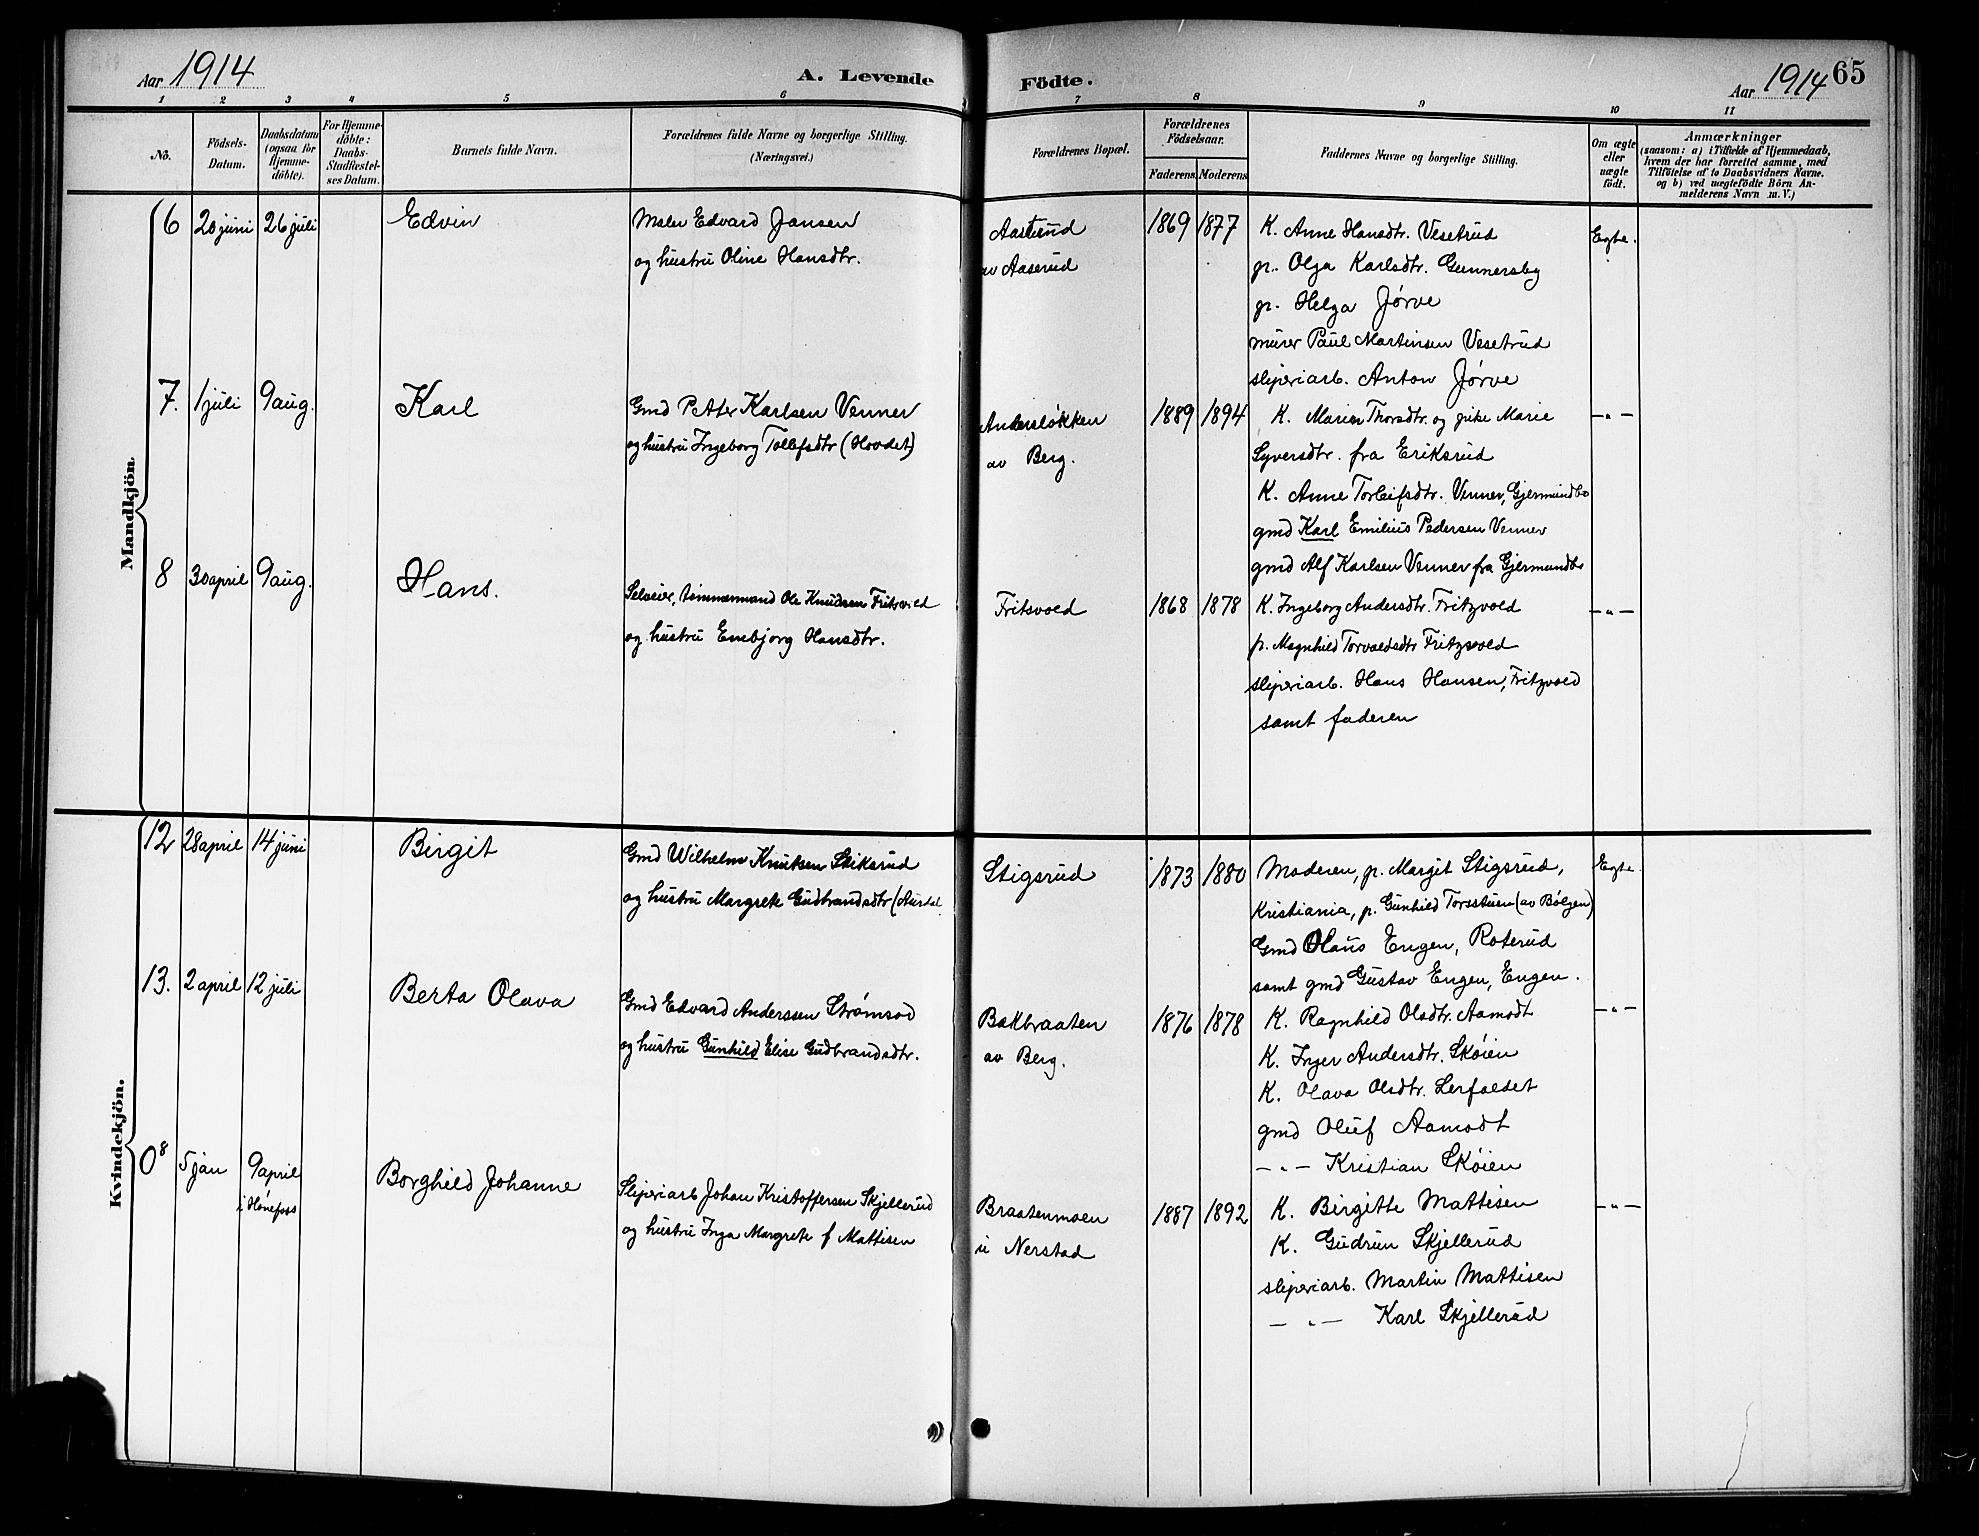 Aar 1914
A. Levende
Födte.
Aar 1914 65
1 2 3 4 5 6 7 8 9 10 11
No.
Födsels-
Datum.
Daabsdatum
(ogsaa for
Hjemme-
döbte).
For Hjemme-
döbte:
Daabs-
Stadfæstel-
ses Datum.
Barnets fulde Navn.
Forældrenes fulde Navne og borgerlige Stilling.
(Næringsvei.)
Forældrenes Bopæl.
Forældrenes
Födselsaar.
Faderens Moderens
Faddernes Navne og borgerlige Stilling.
Om ægte
eller
uægte
født.
Anmærkninger
(saasom: a) i Tilfælde af Hjemmedaab,
hvem der har forrettet samme, med
Tilföielse af to Daabsvidners Navne.
og b) ved uægtefödte Börn An-
melderens Navn m. V.)
Mandkjön.
6 20 juni 26 juli Edvin
Maler Edvard Jansen
og hustru Oline Hansdtr.
Aasterud
av Aaserud
1869 1877
K. Anne Hansdtr. Vesetrud
p. Olga Karlsdtr. Gunnersby
p. Helga Jørve
murer Paul Martinsen Vesetrud
sliperiarb. Anton Jørve
Egte.
7. 1 juli 9 aug. Karl
Gmd Petter Karlsen Venner
og hustru Ingeborg Tollefsdtr (Hovdet)
Andersløkken
av Berg.
1889 1894
K. Maren Thorsdtr. og pike Marie
Syversdtr. fra Eriksrud
K. Anne Torleifsdtr. Venner, Gjermundbo
gmd Karl Emilius Pedersen Venner
gmd Alf Karlsen Venner fra Gjermundbo
—„—
8 30 april 9 aug. Hans.
Selveier, tømmermand Ole Knudsen Fritzvold
og hustru Embjørg Hansdtr.
Fritsvold
1868 1878
K. Ingeborg Andersdtr. Fritzvold
p. Magnhild Torvaldsdtr Fritzvold
sliperiarb. Hans Hansen, Fritzvold
samt faderen
—„—
Kvindekjön.
12 28 april 14 juni Birgit
Gmd Wilhelm Knutsen Stiksrud
og hustru Margrete Gudbrandsdtr (Aurdal
Stigsrud
1873 1880
Moderen, p. Margit Stigsrud,
Kristiania, p. Gunhild Torsstuen (av Bölgen)
Gmd Olaus Engen, Roterud
samt gmd Gustav Engen, Engen.
Egte.
13. 2 april 12 juli Berta Olava
Gmd Edvard Anderssen Strømsod
og hustru Gunhild Elise Gudbrandsdtr.
Bakbraaten
av Berg.
1876 1878
K. Ragnhild Olsdtr. Aamodt
K. Inger Andersdtr. Skøien
K. Olava Olsdtr. Lerfaldet
gmd Oluf Aamodt
—„— Kristian Skøien
—„—
0 8 5 jan 9 april
i Hønefoss
Borghild Johanne
Sliperiarb Johan Kristoffersen Skjellerud
og hustru Inga Margrete f Mattisen
Braatenmoen
u Nerstad
1887 1892
K. Birgitte Mattisen
K. Gudrun Skjellerud
sliperiarb. Martin Mattisen
—„— Karl Skjellerud
—„—